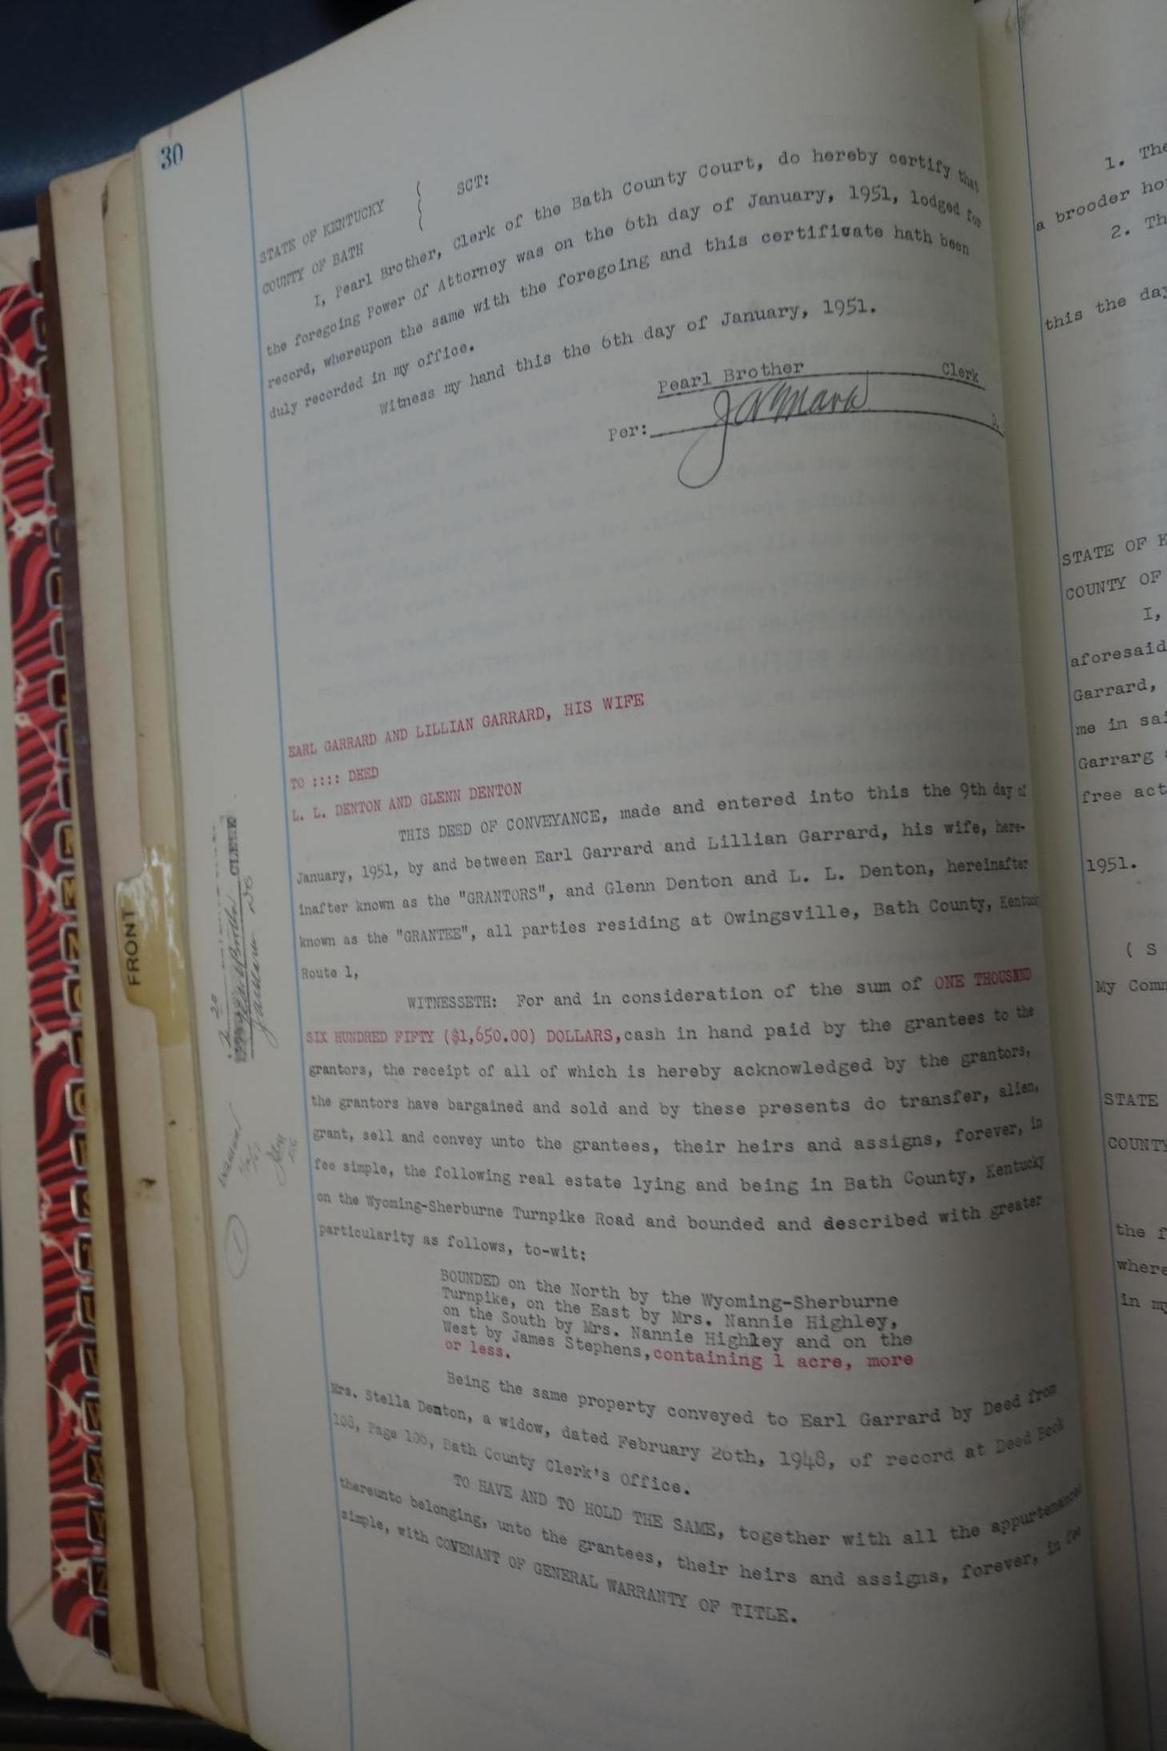 30
STATE OF KENTUCKY
SCT:
COUNTY OF BATH
I, Pearl Brother, Clerk of the Bath County Court, do hereby certify that
the foregoing Power Of Attorney was on the 6th day of January, 1951, lodged for
record, whereupon the same with the foregoing and this certificate hath been
duly recorded in my office.
Witness my hand this the 6th day of January, 1951.
Pearl Brother Clerk
Per:
EARL GARRARD AND LILLIAN GARRARD, HIS WIFE
TO :::: DEED
L. L. DENTON AND GLENN DENTON
THIS DEED OF CONVEYANCE, made and entered into this the 9th day of
January, 1951, by and between Earl Garrard and Lillian Garrard, his wife, here-
inafter known as the "GRANTORS", and Glenn Denton and L. L. Denton, hereinafter
known as the "GRANTEE", all parties residing at Owingsville, Bath County, Kentuc
Route 1,
WITNESSETH: For and in consideration of the sum of ONE THOUSAND
SIX HUNDRED FIFTY ($1,650.00) DOLLARS, cash in hand paid by the grantees to the
grantors, the receipt of all of which is hereby acknowledged by the grantors,
the grantors have bargained and sold and by these presents do transfer, alien,
grant, sell and convey unto the grantees, their heirs and assigns, forever, in
fee simple, the following real estate lying and being in Bath County, Kentucky
on the Wyoming-Sherburne Turnpike Road and bounded and described with greater
particularity as follows, to-wit:
BOUNDED on the North by the Wyoming-Sherburne
Turnpike, on the East by Mrs. Nannie Highley,
on the South by Mrs. Nannie Highley and on the
West by James Stephens, containing 1 acre, more
or less.
Being the same property conveyed to Earl Garrard by Deed from
Mrs. Stella Denton, a widow, dated February 26th, 1948, of record at Deed Book
108, Page 106, Bath County Clerk's Office.
TO HAVE AND TO HOLD THE SAME, together with all the appurtenances
thereunto belonging, unto the grantees, their heirs and assigns, forever, in fee
simple, with COVENANT OF GENERAL WARRANTY OF TITLE.
FRONT
CLERK
1. The
a brooder ho
2. Th
this the day
STATE OF K
COUNTY OF
I,
aforesaid
Garrard,
me in sai
Garrarg
free act
1951.
( S
My Comm
STATE
COUNTY
the f
where
in my